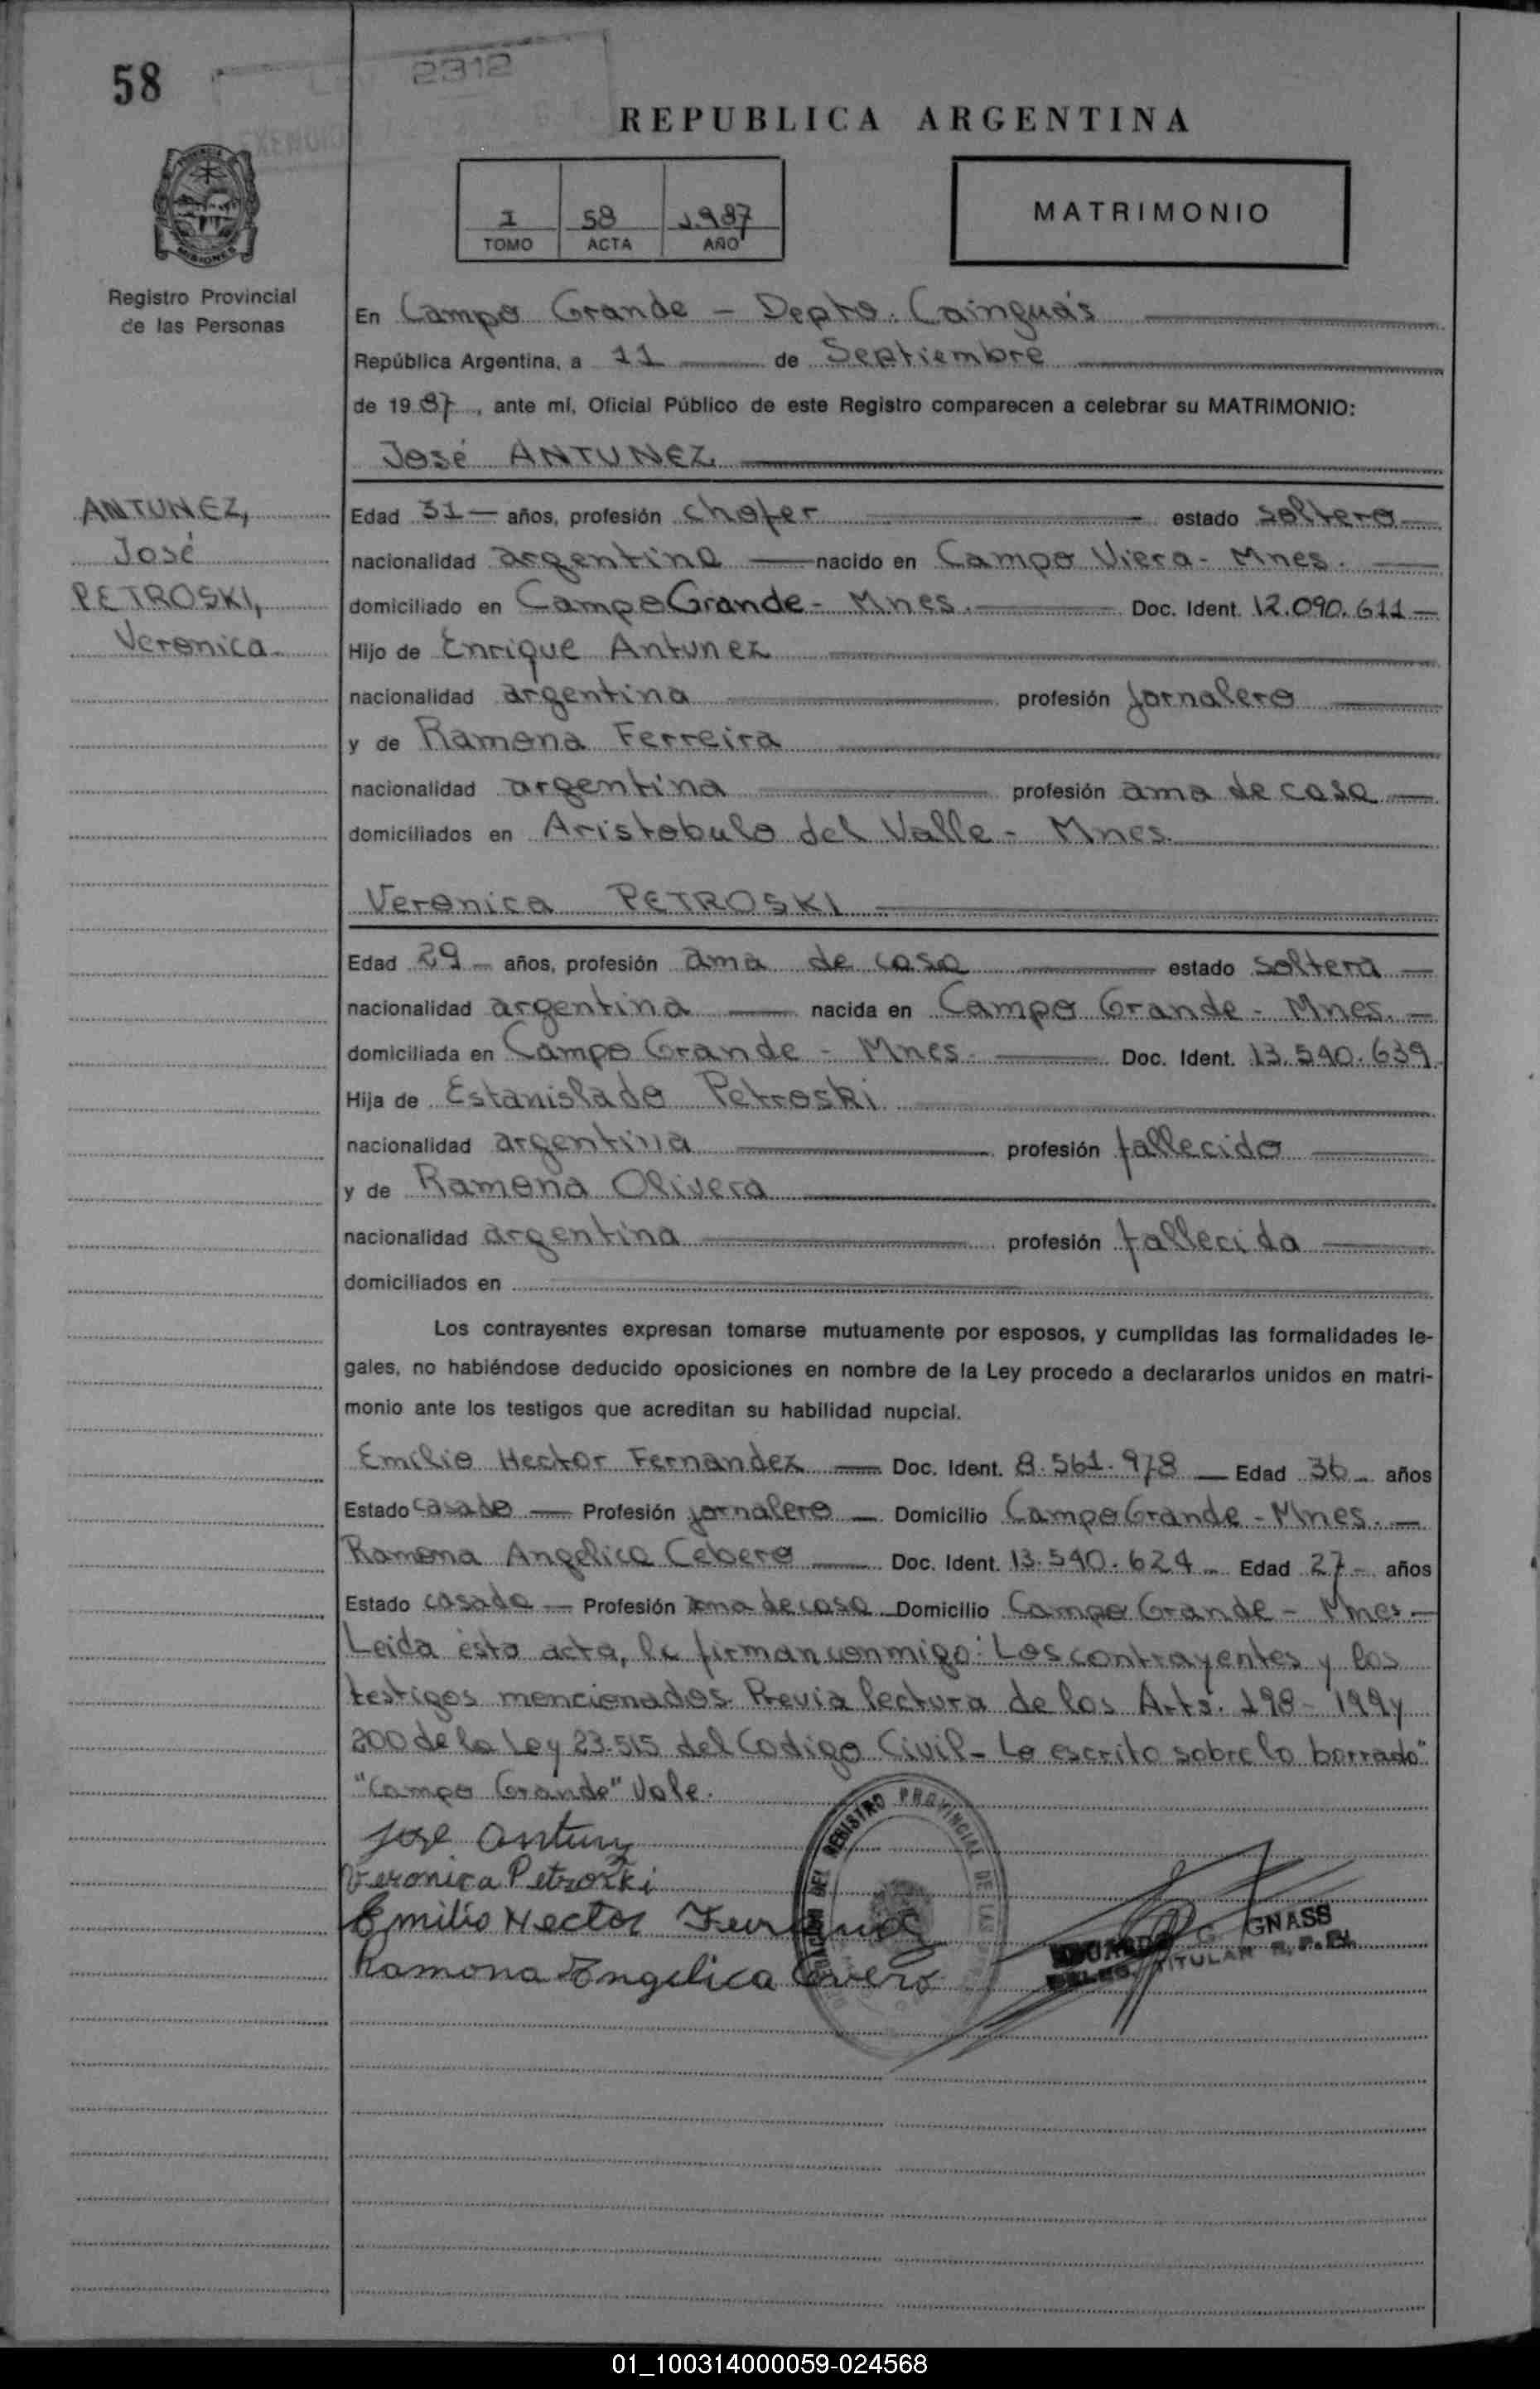 58
2312
REPUBLICA ARGENTINA
1 58 1.987
TOMO ACTA AÑO
MATRIMONIO
Registro Provincial
de las Personas
En Campo Grande - Depto. Cainguás
República Argentina, a 11 de Septiembre
de 1987, ante mí, Oficial Público de este Registro comparecen a celebrar su MATRIMONIO:
José ANTUNEZ
ANTUNEZ,
José
PETROSKI,
Veronica.
Edad 31 - años, profesión chofer estado soltero
nacionalidad argentina nacido en Campo Viera - Mnes.
domiciliado en Campo Grande - Mnes. Doc. Ident. 12.090.611
Hijo de Enrique Antunez
nacionalidad argentina profesión jornalero
y de Ramona Ferreira
nacionalidad argentina profesión ama de casa
domiciliados en Aristobulo del Valle - Mnes.
Veronica PETROSKI
Edad 29 - años, profesión ama de casa estado soltera
nacionalidad argentina nacida en Campo Grande - Mnes.
domiciliada en Campo Grande - Mnes. Doc. Ident. 13.540.639
Hija de Estanislado Petroski
nacionalidad argentina profesión fallecido
y de Ramona Olivera
nacionalidad argentina profesión fallecida
domiciliados en
Los contrayentes expresan tomarse mutuamente por esposos, y cumplidas las formalidades le-
gales, no habiéndose deducido oposiciones en nombre de la Ley procedo a declararlos unidos en matri-
monio ante los testigos que acreditan su habilidad nupcial.
Emilio Hector Fernandez Doc. Ident. 8.561.978 Edad 36 años
Estado casado Profesión jornalero Domicilio Campo Grande - Mnes.
Ramona Angelica Cebero Doc. Ident. 13.540.624 Edad 27 - años
Estado casada Profesión ama de casa Domicilio Campo Grande - Mnes
Leida ésta acta, la firman conmigo: Los contrayentes y los
testigos mencionados. Previa lectura de los Arts. 198 - 199 y
200 de la Ley 23.515 del Codigo Civil - Lo escrito sobre lo borrado"
"Campo Grande" Vale.
Jose Antunez
Veronica Petroski
Emilio Hector
Ramona Angelica
REGISTRO PROVINCIAL DE LAS
GNASS
TITULAR
01_100314000059-024568